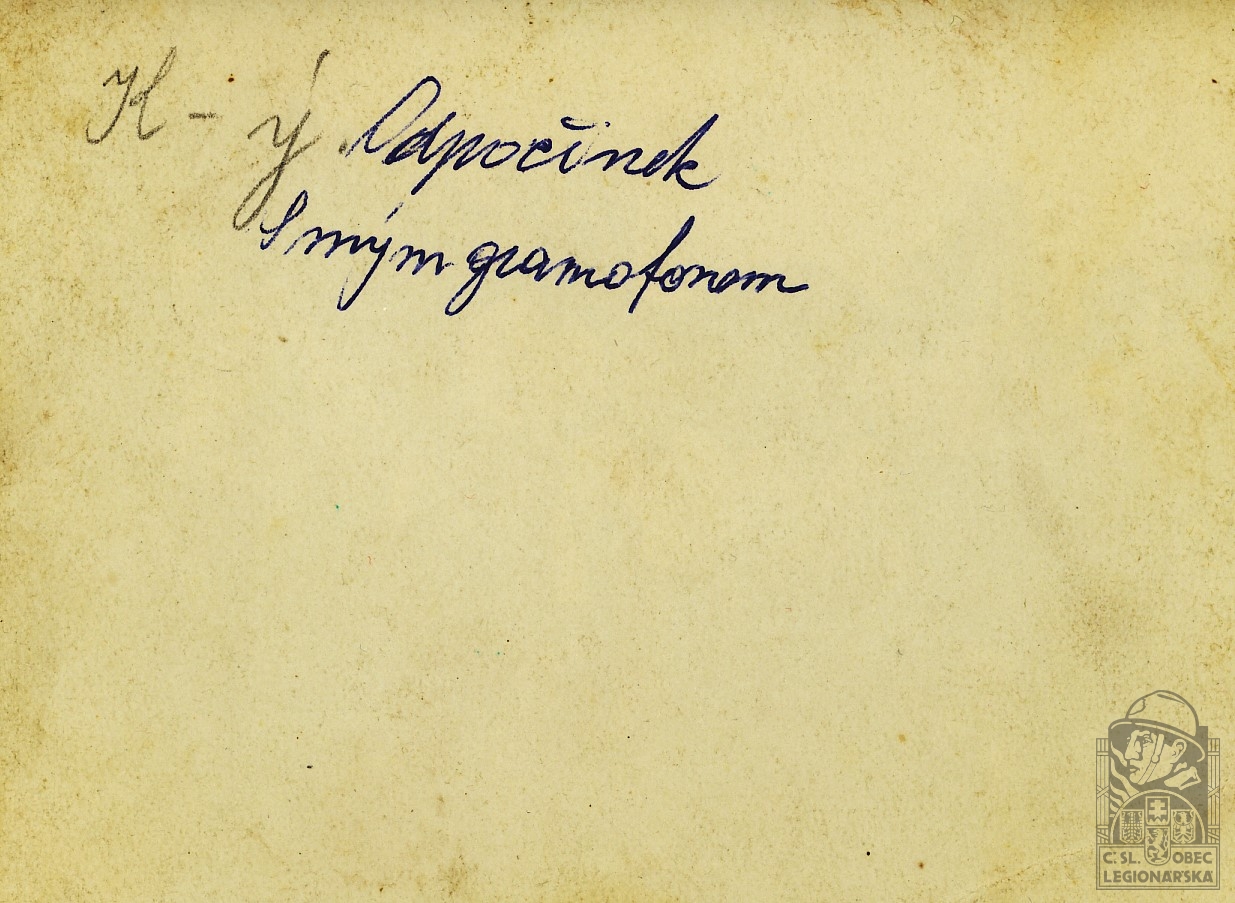 K - ý Odpočinek
S mým gramofonem
Č. SL. OBEC
LEGIONÁŘSKÁ